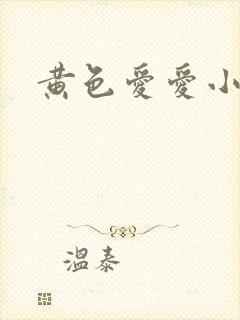 黄色愛愛小
温泰